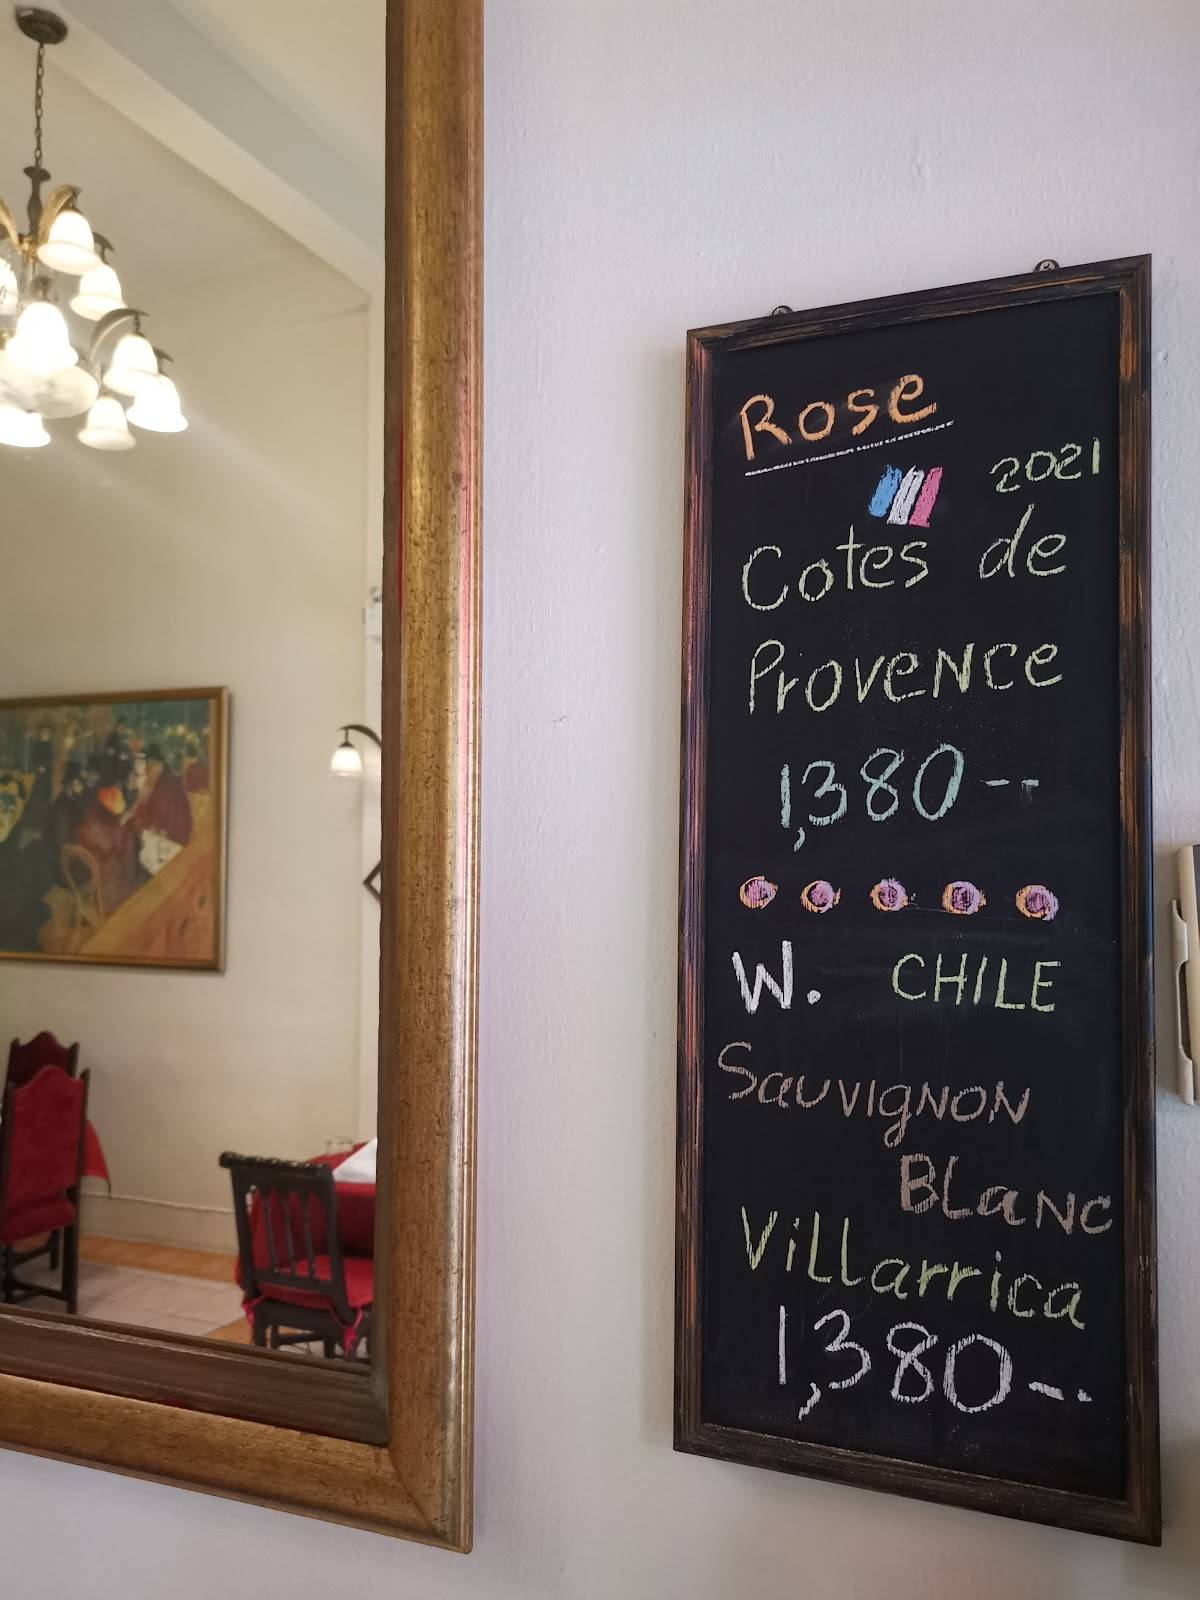 Rose
2021
Cotes de
Provence
1,380--
W. CHILE
Sauvignon
Blanc
Villarrica
1,380--